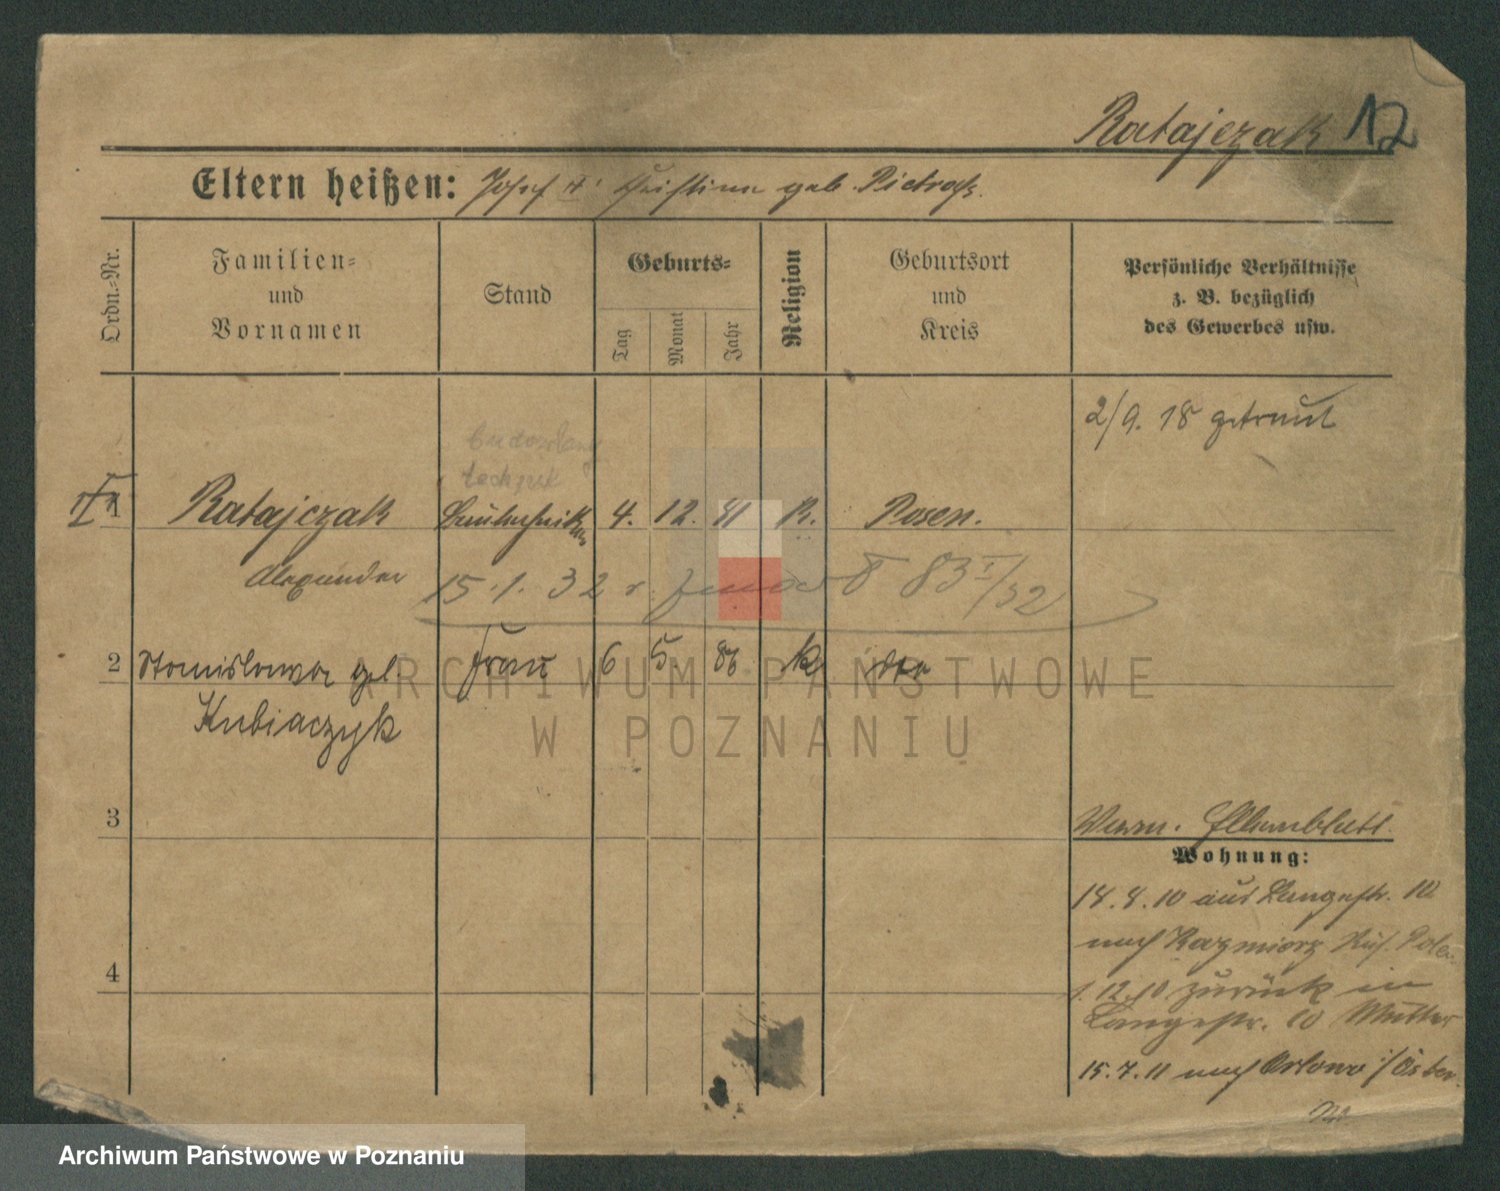 Ratajczak 12
Eltern heißen: Josef u. Christina geb. Pietrock.
Ordn.-Nr.
Familien-
und
Vornamen
Stand
Geburts-
Tag
Monat
Jahr
Religion
Geburtsort
und
Kreis
Persönliche Verhältnisse
z. B. bezüglich
des Gewerbes usw.
2/9. 18 getraut
budowlany
technik
1 Ratajczak 4. 12. 81 K. Posen.
Alexander
15.1.32 r. 8 83 I/32
2 Stanislawa geb. Frau 6 5. 86 k dto
Kubiaczyk
3
4
Wohnung:
18.8.10 aus Langestr. 10
nach Kazmierz Krs.
1.12.10 zurück in
Langestr. 10 Mutter
15.7.11 nach Orlowo
ARCHIWUM PAŃSTWOWE
W POZNANIU
Archiwum Państwowe w Poznaniu